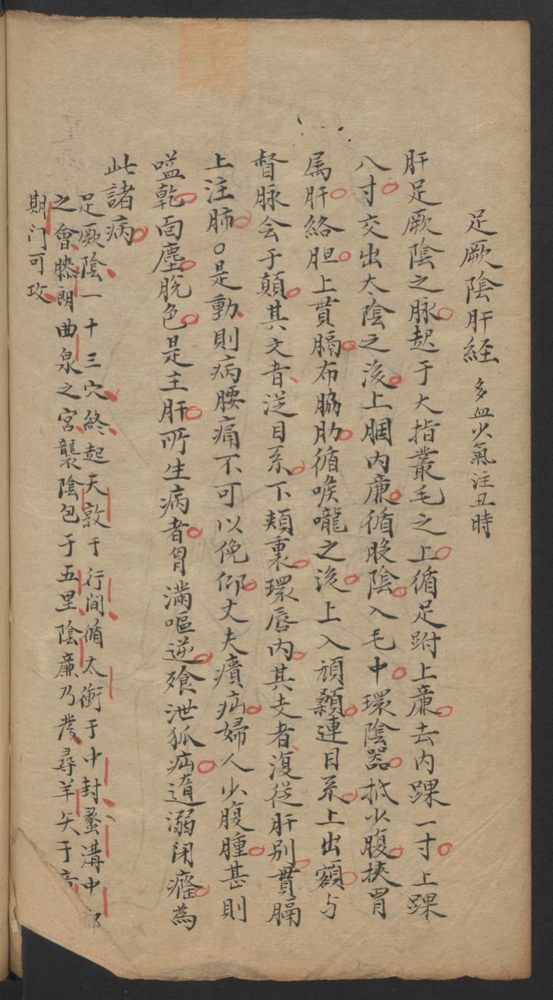 足厥陰肝経 多血少氣注丑時
肝足厥陰之脉起于大指叢毛之上循足跗上廉去内踝一寸上踝
八寸交出太陰之後上膕内廉循股陰入毛中環陰器抵少腹挾胃
属肝絡胆上貫膈布脇肋循喉嚨之後上入頏顙連目系上出額与
督脉会于顛其支者従目系下頬裏環唇内其支者復従肝別貫膈
上注肺○是動則病腰痛不可以俛仰丈夫㿉疝婦人少腹腫甚則
嗌乾面塵脱色是主肝所生病者胃滿嘔逆飱泄狐疝遺溺閉癃為
此諸病
足厥陰一十三穴終起大敦于行間循太衝于中封蠡溝中
之會膝関曲泉之宮襲陰包于五里陰廉乃發尋羊矢于
期门可攻